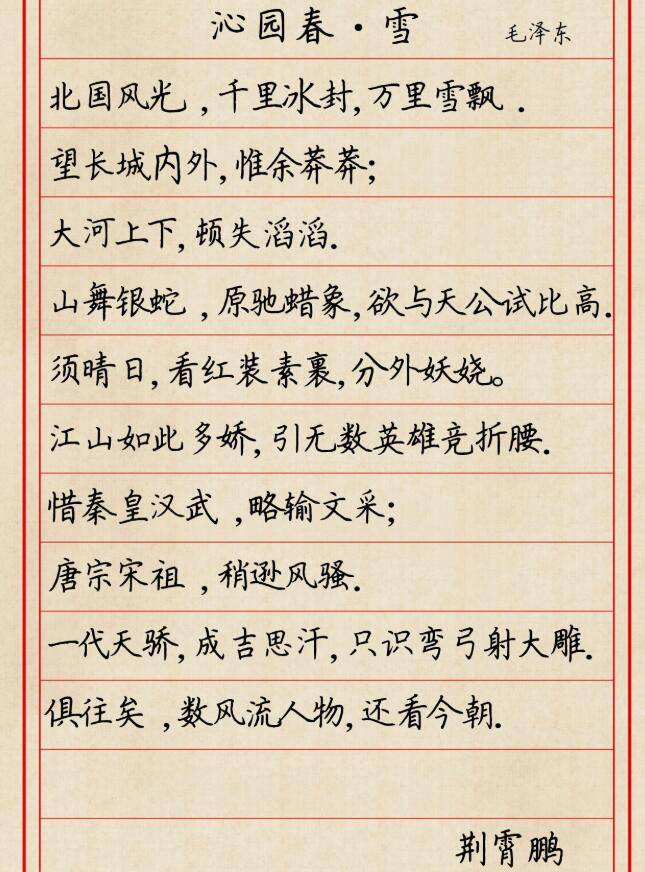 沁园春·雪 毛泽东
北国风光,千里冰封,万里雪飘.
望长城内外,惟余莽莽;
大河上下,顿失滔滔.
山舞银蛇,原驰蜡象,欲与天公试比高.
须晴日,看红装素裹,分外妖娆。
江山如此多娇,引无数英雄竞折腰.
惜秦皇汉武,略输文采;
唐宗宋祖,稍逊风骚.
一代天骄,成吉思汗,只识弯弓射大雕.
俱往矣,数风流人物,还看今朝.
荆霄鹏